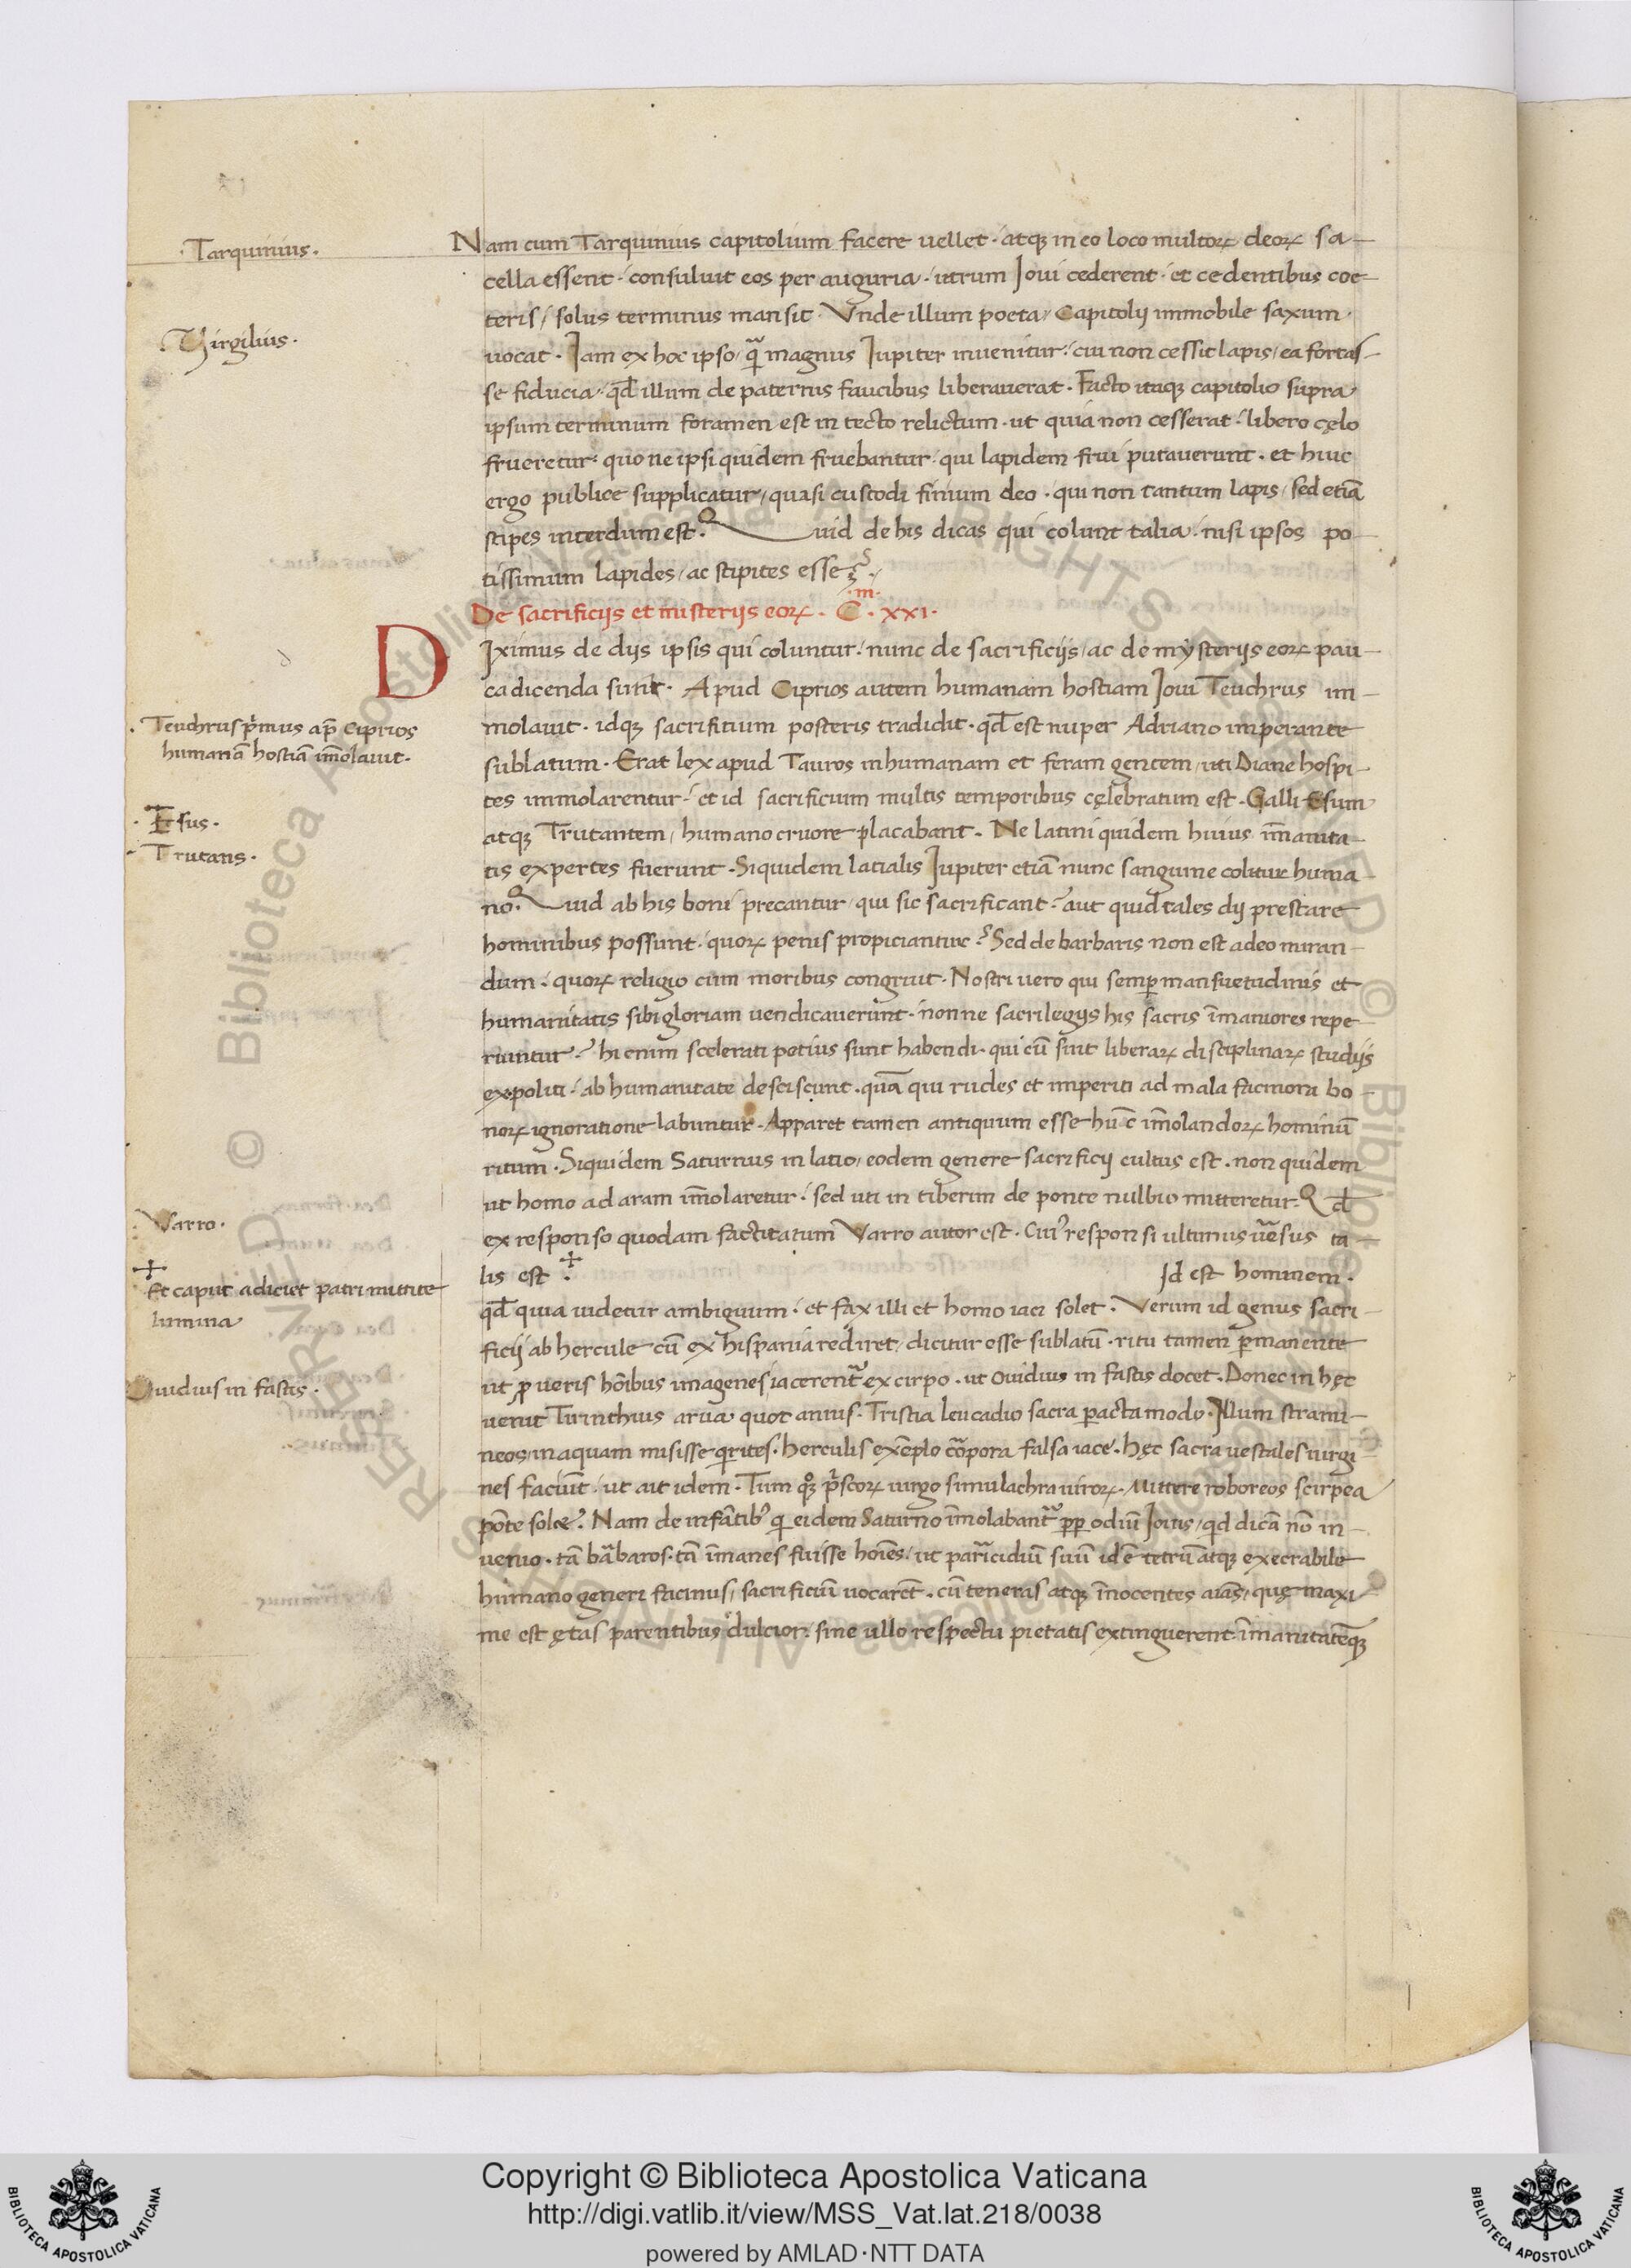 ·Tarquinius·
Nam cum Tarquinius capitolium facere uellet· atqꝫ in eo loco multoꝝ deoꝝ sa-
cella essent· consuluit eos per auguria· utrum Joui cederent· et cedentibus coe-
teris/ solus terminus mansit· Vnde illum poeta/ Capitolij immobile saxum·
·Virgilius·
uocat· Jam ex hoc ipso/ qͣ magnus Jupiter inuenitur· cui non cessit lapis/ ea fortas-
se fiducia/ qd̄ illum de paternis faucibus liberauerat· Facto itaqꝫ capitolio supra
ipsum terminum foramen est in tecto relictum· ut quia non cesserat· libero cęlo
frueretur· quo ne ipsi quidem fruebantur· qui lapidem frui putauerunt· et huic
ergo publice supplicatur/ quasi custodi finium deo· qui non tantum lapis/ sed etiā
stipes interdum est· Quid de his dicas qui colunt talia· nisi ipsos po-
tissimum lapides/ ac stipites esse?
De sacrificijs et misterijs eoꝝ· C·m· xxi·
DJximus de dijs ipsis qui coluntur· nunc de sacrificijs/ ac de mysterijs eoꝝ pau-
ca dicenda sunt· Apud Ciprios autem humanam hostiam Joui Teuchrus im-
·Teuchrus pͥmus ap̄ Ciprios
humanā hostiā im̄olauit·
molauit· idqꝫ sacrifitium posteris tradidit· qd̄ est nuper Adriano imperante
sublatum· Erat lex apud Tauros inhumanam et feram gentem/ uti Diane hospi-
tes immolarentur· et id sacrificium multis temporibus cęlebratum est· Galli Esum
·Esus·
atqꝫ Trutantem/ humano cruore placabant· Ne latini quidem huius im̄anita-
·Trutans·
tis expertes fuerunt· Siquidem latialis Jupiter etiā nunc sanguine colitur huma-
no· Quid ab his boni precantur/ qui sic sacrificant? aut quid tales dij prestare
hominibus possunt· quoꝝ penis propiciantur? Sed de barbaris non est adeo miran-
dum· quoꝝ religio cum moribus congruit· Nostri uero qui semꝑ mansuetudinis et
humanitatis sibi gloriam uendicauerunt· nonne sacrilegijs his sacris im̄aniores repe-
riuntur? hi enim scelerati potius sunt habendi· qui cū sint liberaꝝ disciplinaꝝ studijs
expoliti· ab humanitate desciscunt· quā qui rudes et imperiti ad mala facinora bo-
noꝝ ignoratione labuntur· Apparet tamen antiquum esse hūc im̄olandoꝝ hominū
ritum· Siquidem Saturnus in latio/ eodem genere sacrificij cultus est· non quidem
ut homo ad aram im̄olaretur· sed uti in tiberim de ponte nulbio mitteretur· Qd̄
·Varro·
ex responso quodam factitatum Varro autor est· Cuiꝰ responsi ultimus ūsus ta-
lis est ·✢ Jd est hominem·
✢
Et caput adiciet patri mittite
lumina
qd̄ quia uidetur ambiguum· et fax illi et homo iaci solet· Verum id genus sacri-
ficij ab hercule cū ex hispania rediret/ dicitur esse sublatū· ritu tamen ꝑmanente
ut ꝓ ueris hoībus imagines iacerentᷣ ex cirpo· ut Ouidius in fastis docet· Donec in hęc
Ouidius in fastis·
uenit Tirinthius arua quot annis· Tristia leucadio sacra ꝑacta modo· Jllum strami-
neos in aquam misisse qͥrites· herculis exēplo corpora falsa iace· hęc sacra uestales uirgi-
nes faciūt· ut ait idem· Tum qꝫ pͥscoꝝ uirgo simulachra uiroꝝ· Mittere roboreos scirpea
pōte solet· Nam de infātibꝰ qͥ eidem Saturno im̄olabantᷣ ꝓp odiū Jouis/ qd dicā nō in-
uenio· tā barbaros· tā im̄anes fuisse hoīes/ ut parricidiū suū id ē tetrū atqꝫ execrabile
humano generi facinus/ sacrificiū uocarēt· cū teneras atqꝫ īnocentes aīas/ quę maxi-
me est ętas parentibus dulcior· sine ullo respectu pietatis extinguerent· im̄anitatēqꝫ
Copyright © Biblioteca Apostolica Vaticana
http://digi.vatlib.it/view/MSS_Vat.lat.218/0038
powered by AMLAD·NTT DATA
BIBLIOTECA APOSTOLICA VATICANA
BIBLIOTECA APOSTOLICA VATICANA